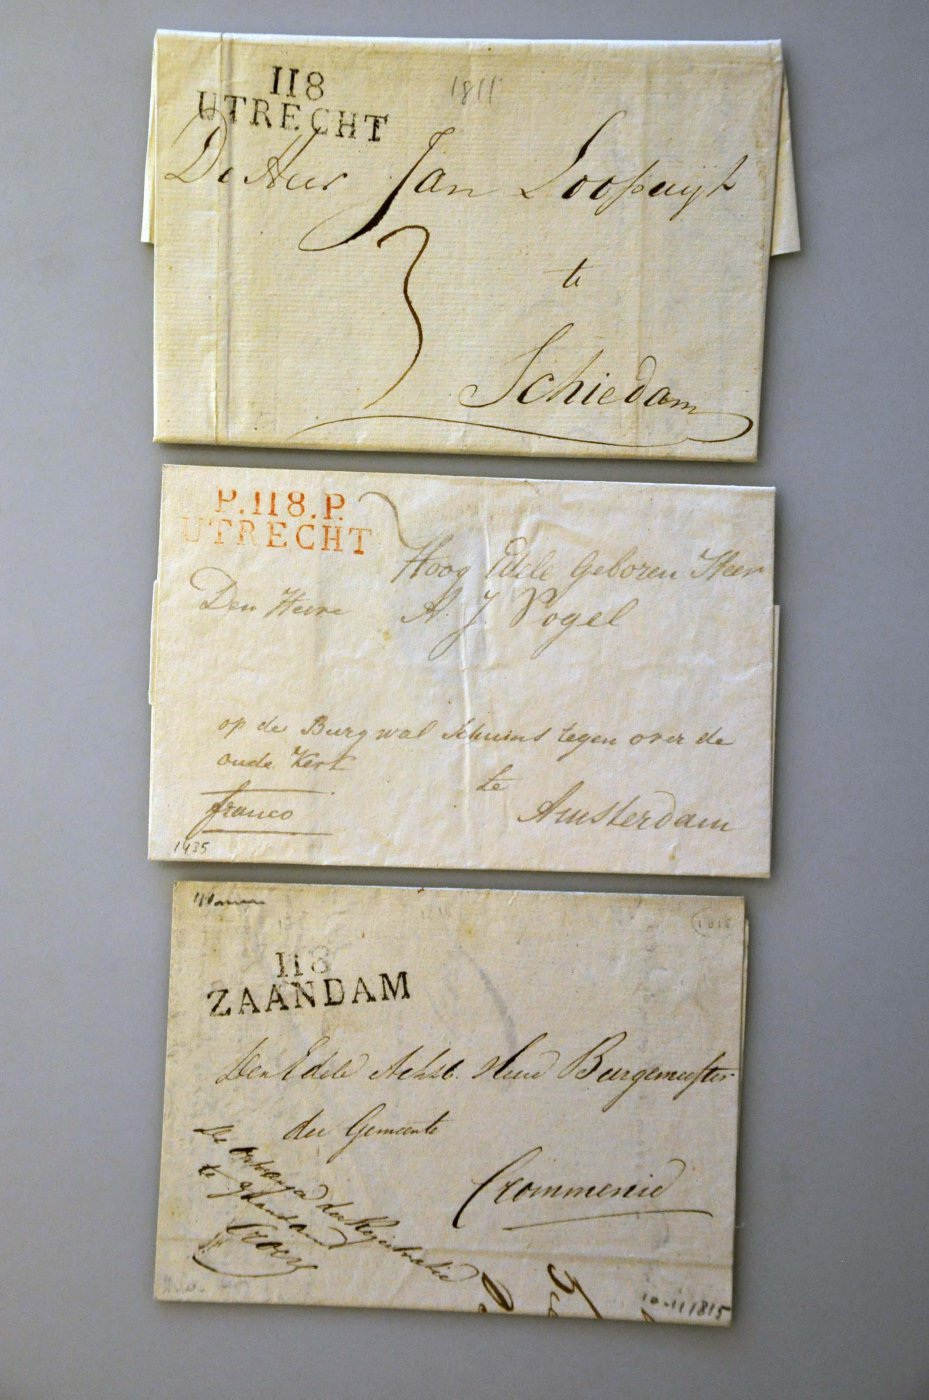 118
UTRECHT
1811
De Heer Jan Loopuijt
te
3
Schiedam
P.118.P.
UTRECHT
Hoog Edele Geboren Heer
Den Heere A. J. Vogel
op de Burgwal schuins tegen over de
oude Kerk
te
franco
Amsterdam
1435
1815
118
ZAANDAM
Den Edele Achtb. Heer Burgemeester
der Gemeente
Crommenie
De ontvanger der Registratie
te Zaandam
10-11 1815